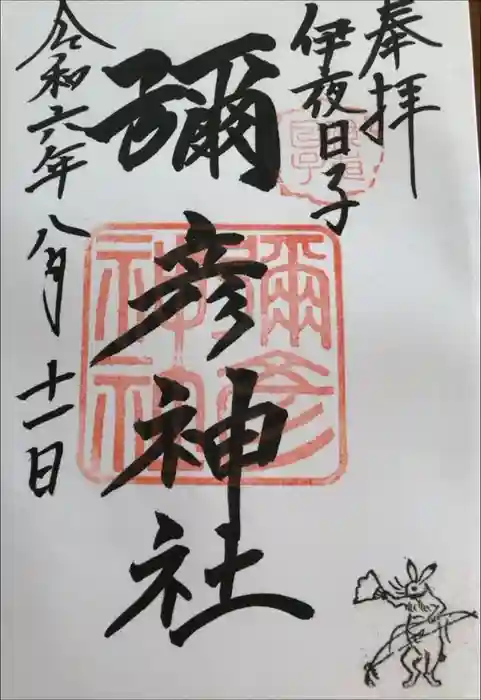 奉拝
伊夜日子
彌彦神社
彌彦神社
令和六年八月十一日